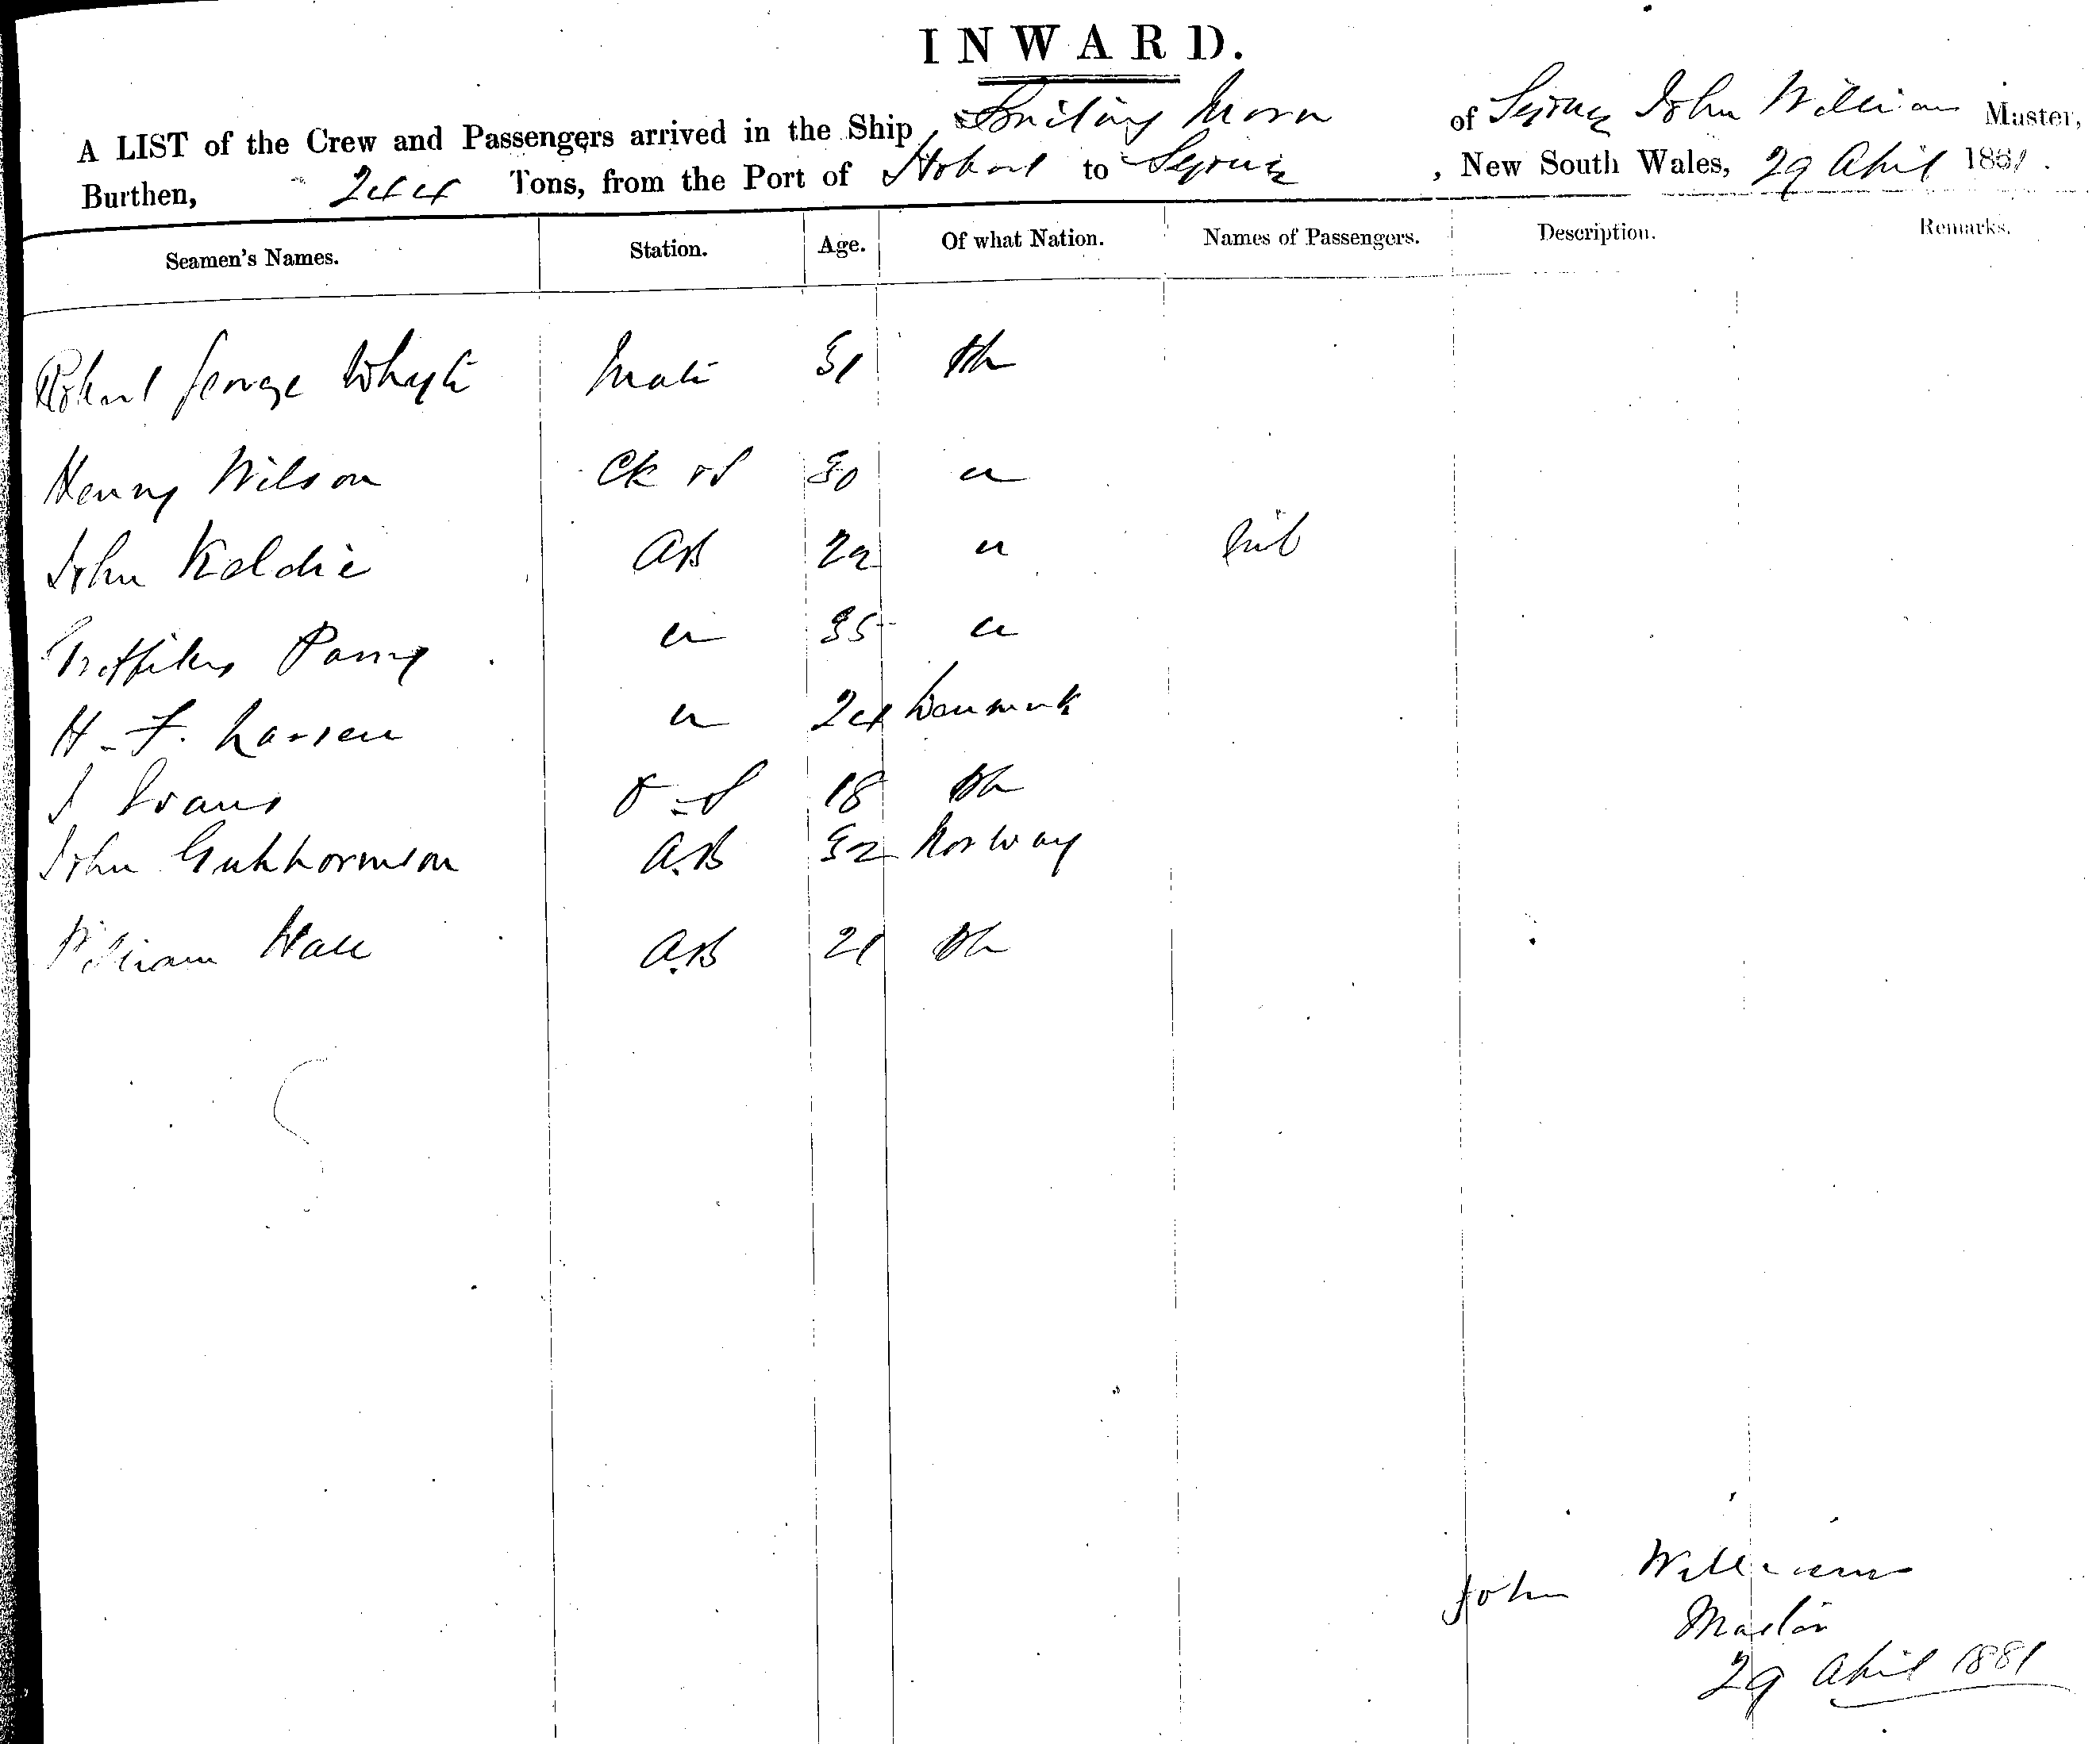 INWARD.
A LIST of the Crew and Passengers arrived in the Ship, Smiling Morn of Sydney John Williams Master,
Burthen, 244 Tons, from the Port of Hobart to Sydney, New South Wales, 29 April 1881.
Seamen's Names. Station. Age. Of what Nation. Names of Passengers. Description. Remarks.
Robert George Whyte Mate 31 Br
Henry Wilson Ck & S 30 "
John Keldie AB 22 " Nil
Griffiths Parry " 35 "
H. F. Larsen " 24 Denmark
J Evans O.S 18 Br
John A.B 32 Norway
William Hall A.B 21 Br
John Williams
Master
29 April 1881